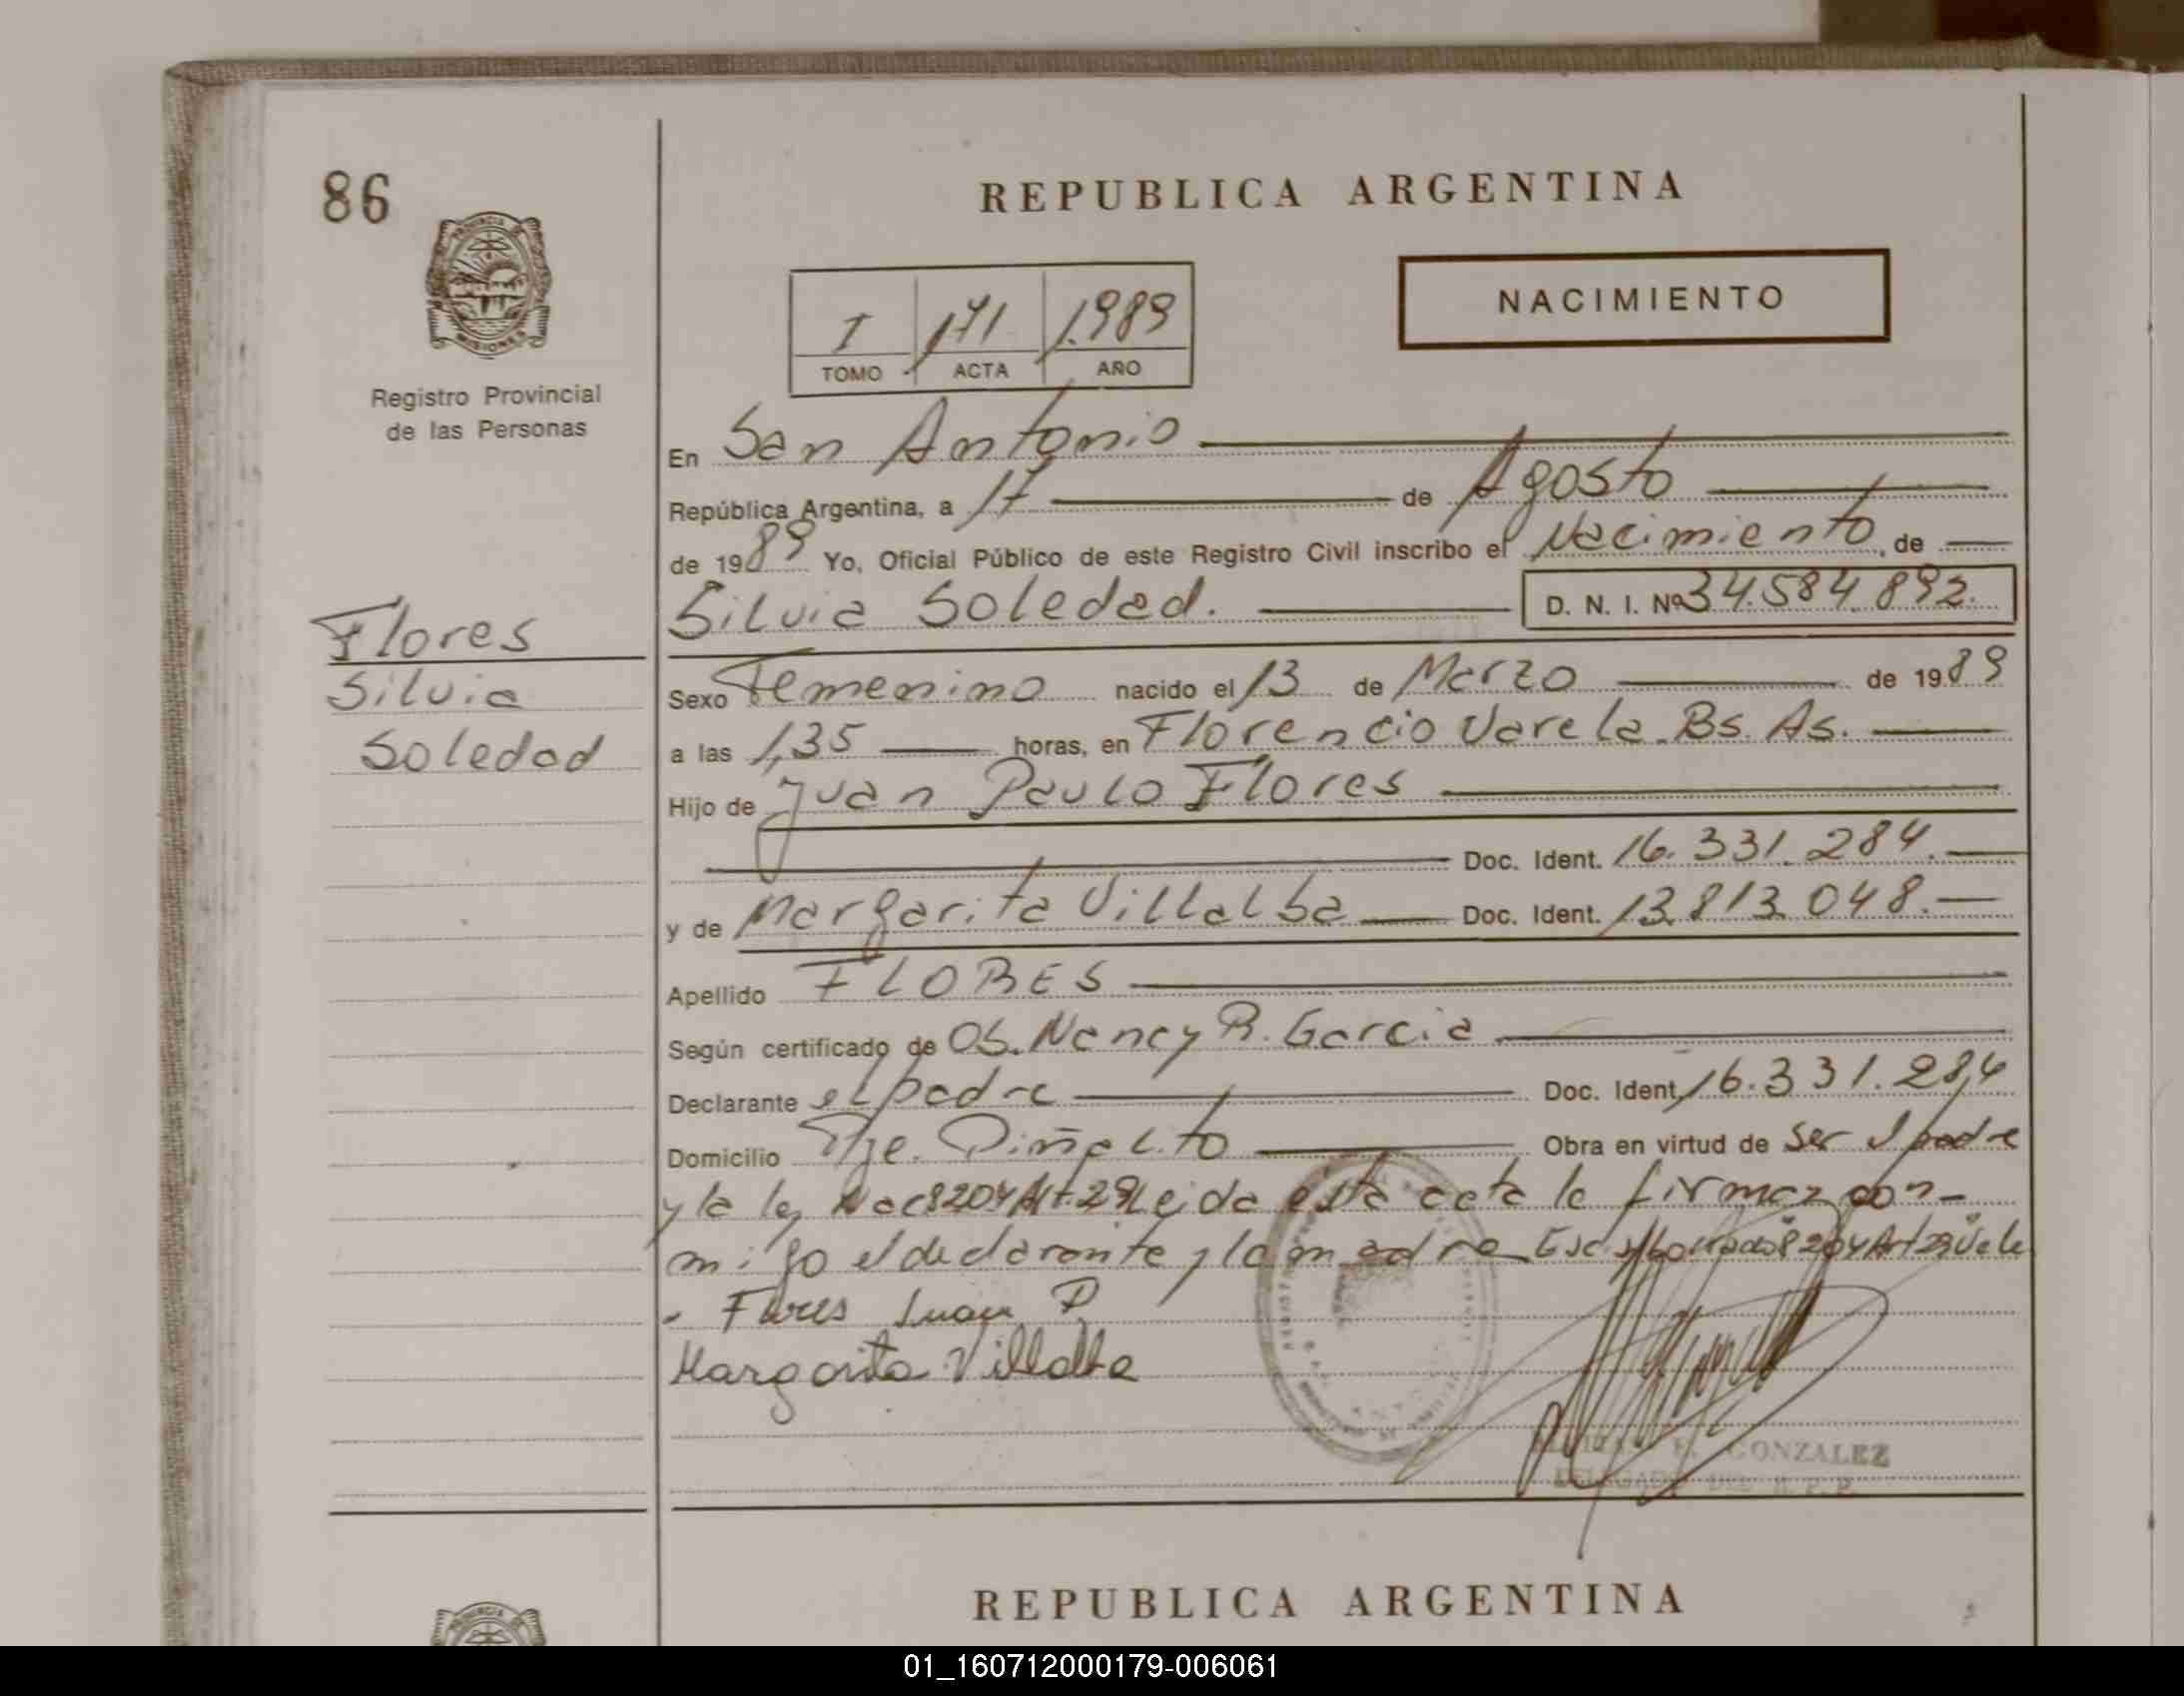 86
REPUBLICA ARGENTINA
PROVINCIA DE
MISIONES
NACIMIENTO
I 171 1.989
TOMO ACTA AÑO
Registro Provincial
de las Personas
En San Antonio
República Argentina, a 17 de Agosto
de 1989 Yo, Oficial Público de este Registro Civil inscribo el Nacimiento, de
Silvia Soledad. D. N. I. Nº 34.584.892.
Flores
Silvia
Soledad
Sexo Femenino nacido el 13 de Marzo de 1989
a las 1,35 horas, en Florencio Varela. Bs. As.
Hijo de Juan Paulo Flores
Doc. Ident. 16.331.284.
y de Margarita Villalba Doc. Ident. 13.813.048.
Apellido FLORES
Según certificado de Ob. Nancy R. Garcia
Declarante el padre Doc. Ident. 16.331.284
Domicilio Pje. Piñalito Obra en virtud de ser el padre
y la ley Nac 8204 Art. 29 Leida esta acta la firman con-
migo el declarante y la madre 8204 Art 29 Vale
- Flores Juan P
Margarita Villalba
GONZALEZ
DELEGADO DEL R. P. P.
REPUBLICA ARGENTINA
01_160712000179-006061